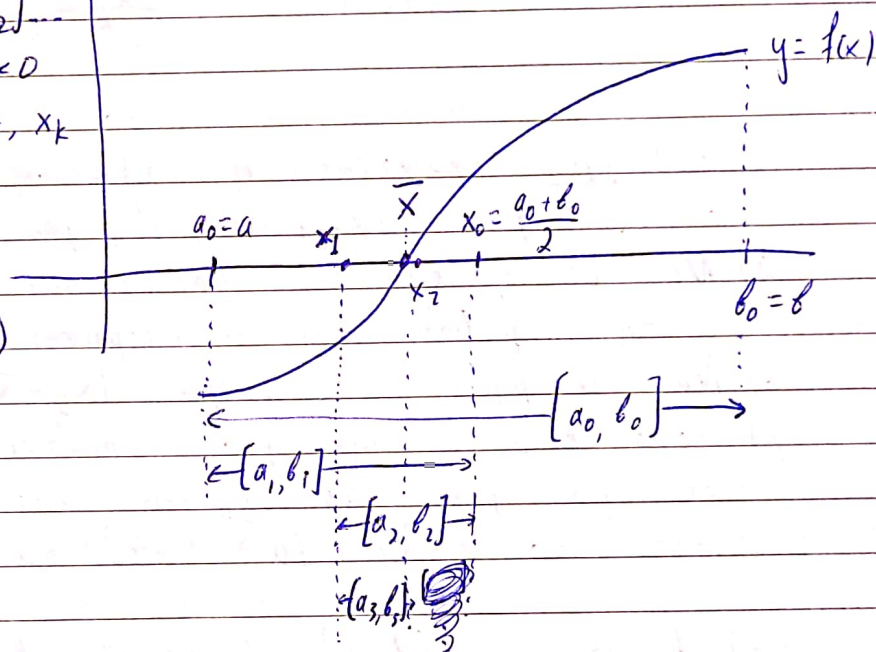 < 0
, xₖ
y = f(x)
a₀ = a
x₁
x̄
x₀ = (a₀ + b₀)/2
x₂
b₀ = b
[a₀, b₀]
[a₁, b₁]
[a₂, b₂]
[a₃, b₃]